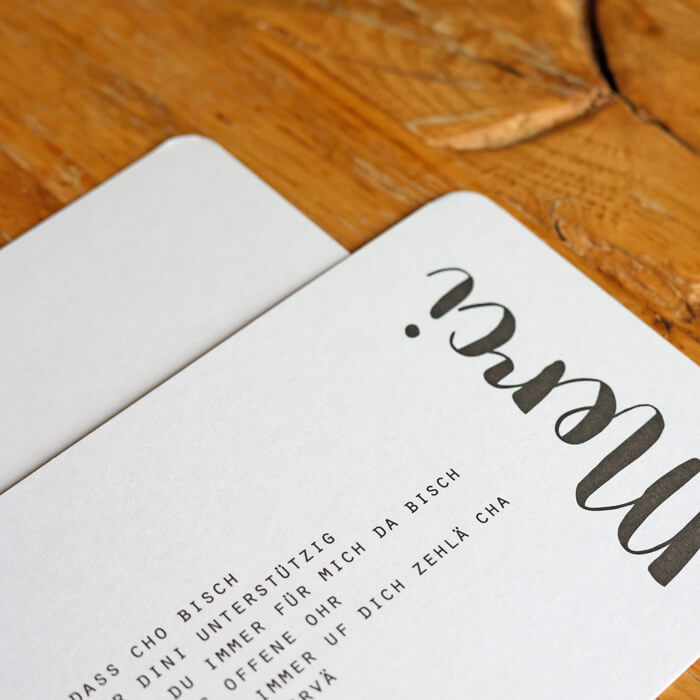 Merci
DASS CHO BISCH
DINI UNTERSTÜTZIG
DU IMMER FÜR MICH DA BISCH
OFFENE OHR
IMMER UF DICH ZEHLÄ CHA